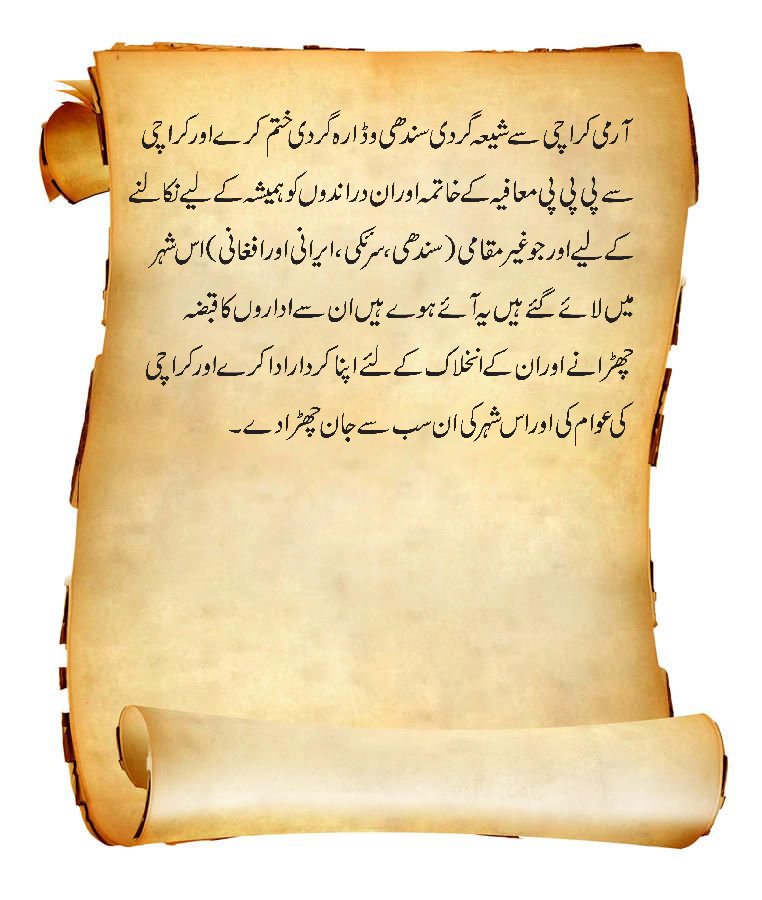 آرمی کراچی سے شیعہ گردی سندھی وڈارہ گردی ختم کرے اور کراچی
سے پی پی پی معافیہ کے خاتمہ اور ان دراندوں کو ہمیشہ کے لیے نکالنے
کے لیے اور جو غیر مقامی (سندھی، سرئکی، ایرانی اور افغانی) اس شہر
میں لائے گئے ہیں یہ آئے ہوے ہیں ان سے اداروں کا قبضہ
چھڑانے اور ان کے انخلاک کے لئے اپنا کردار ادا کرے اور کراچی
کی عوام کی اور اس شہر کی ان سب سے جان چھڑا دے۔